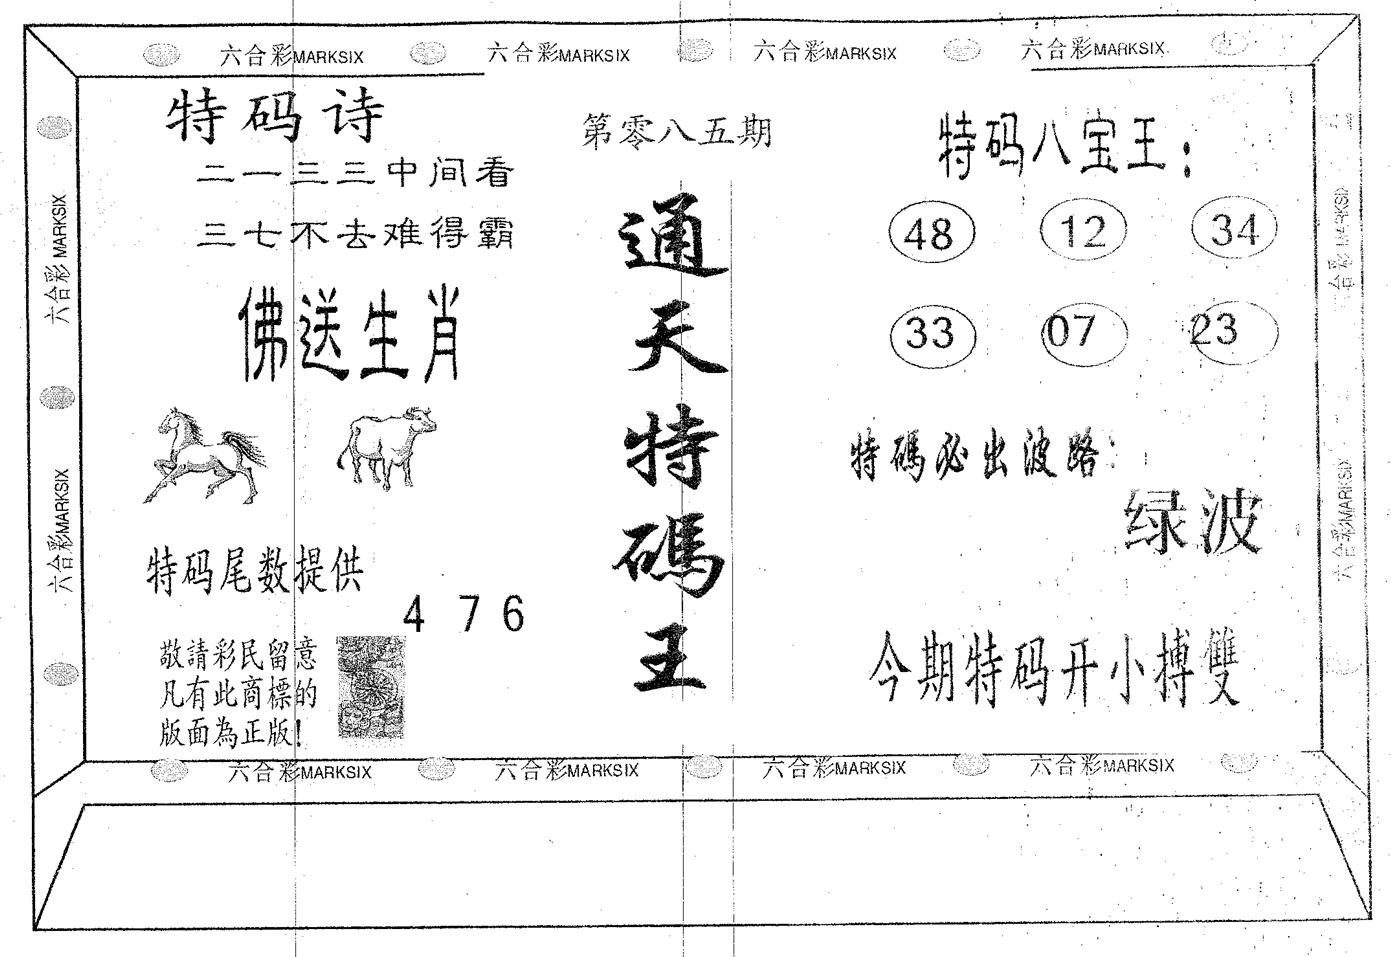 六合彩MARKSIX 六合彩MARKSIX 六合彩MARKSIX 六合彩MARKSIX
特码诗
二一三三中间看
三七不去难得霸
佛送生肖
特码尾数提供
4 7 6
敬請彩民留意
凡有此商標的
版面為正版!
第零八五期
通天特碼王
特码八宝王:
48 12 34
33 07 23
特碼必出波路:
绿波
今期特码开小搏雙
六合彩MARKSIX
六合彩MARKSIX
合彩MARKSIX
六合彩MARKSIX
六合彩MARKSIX 六合彩MARKSIX 六合彩MARKSIX 六合彩MARKSIX